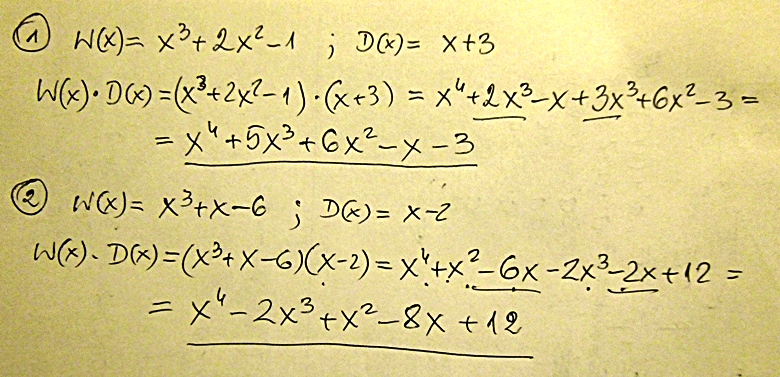 ① W(x)= x³+2x²-1 ; D(x)= x+3
W(x)·D(x)=(x³+2x²-1)·(x+3) = x⁴+2x³-x+3x³+6x²-3 =
= x⁴+5x³+6x²-x-3
② W(x)= x³+x-6 ; D(x)= x-2
W(x)·D(x)=(x³+x-6)(x-2)= x⁴+x²-6x-2x³-2x+12 =
= x⁴-2x³+x²-8x+12